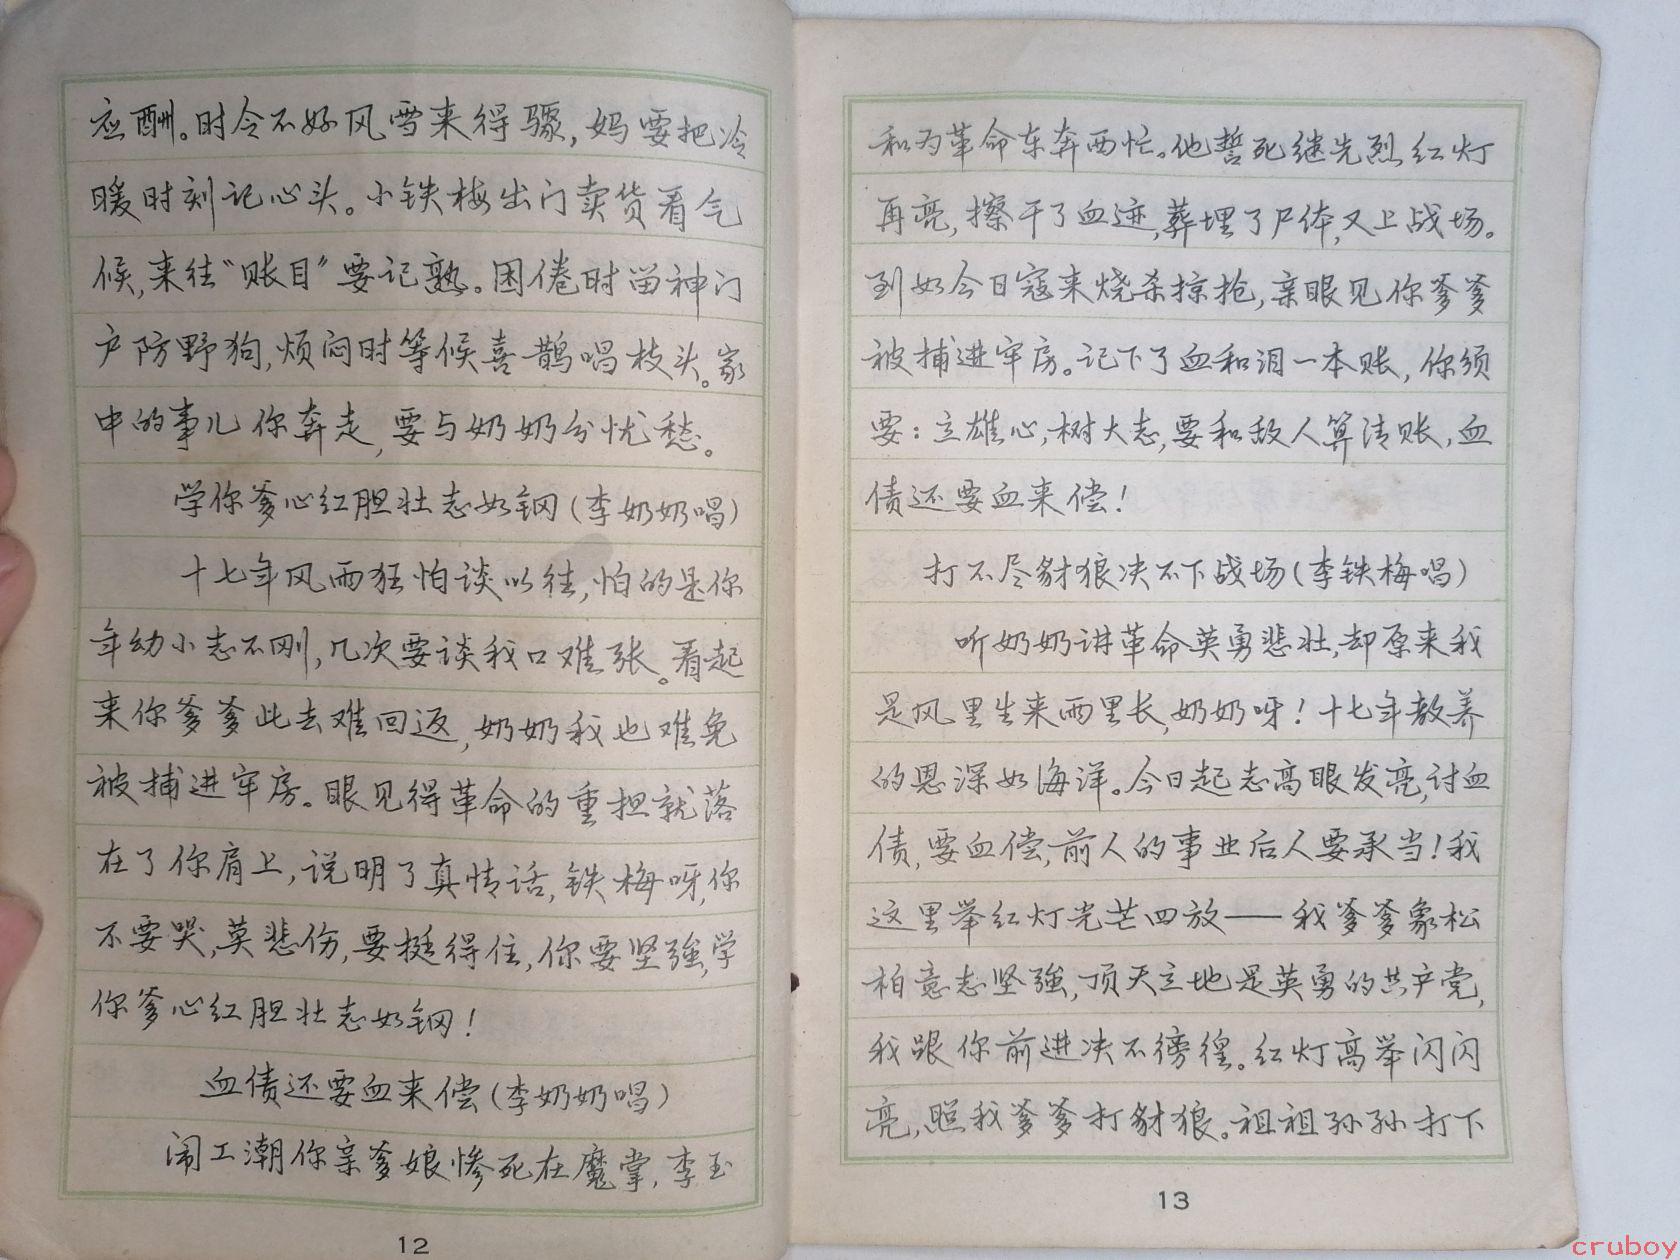 应酬。时令不好风雪来得骤，妈要把冷
暖时刻记心头。小铁梅出门卖货看气
候，来往“账目”要记熟。困倦时留神门
户防野狗，烦闷时等候喜鹊唱枝头。家
中的事儿你奔走，要与奶奶分忧愁。
学你爹心红胆壮志如钢（李奶奶唱）
十七年风雨狂怕谈以往，怕的是你
年幼小志不刚，几次要谈我口难张。看起
来你爹爹此去难回返，奶奶我也难免
被捕进牢房。眼见得革命的重担就落
在了你肩上，说明了真情话，铁梅呀，你
不要哭，莫悲伤，要挺得住，你要坚强，学
你爹心红胆壮志如钢！
血债还要血来偿（李奶奶唱）
闹工潮你亲爹娘惨死在魔掌，李玉
12
和为革命东奔西忙。他誓死继先烈红灯
再亮，擦干了血迹，葬埋了尸体，又上战场。
到如今日寇来烧杀掠抢，亲眼见你爹爹
被捕进牢房。记下了血和泪一本账，你须
要：立雄心，树大志，要和敌人算清账，血
债还要血来偿！
打不尽豺狼决不下战场（李铁梅唱）
听奶奶讲革命英勇悲壮，却原来我
是风里生来雨里长，奶奶呀！十七年教养
的恩深如海洋。今日起志高眼发亮，讨血
债，要血偿，前人的事业后人要承当！我
这里举红灯光芒四放——我爹爹象松
柏意志坚强，顶天立地是英勇的共产党，
我跟你前进决不徬徨。红灯高举闪闪
亮，照我爹爹打豺狼。祖祖孙孙打下
13
cruboy